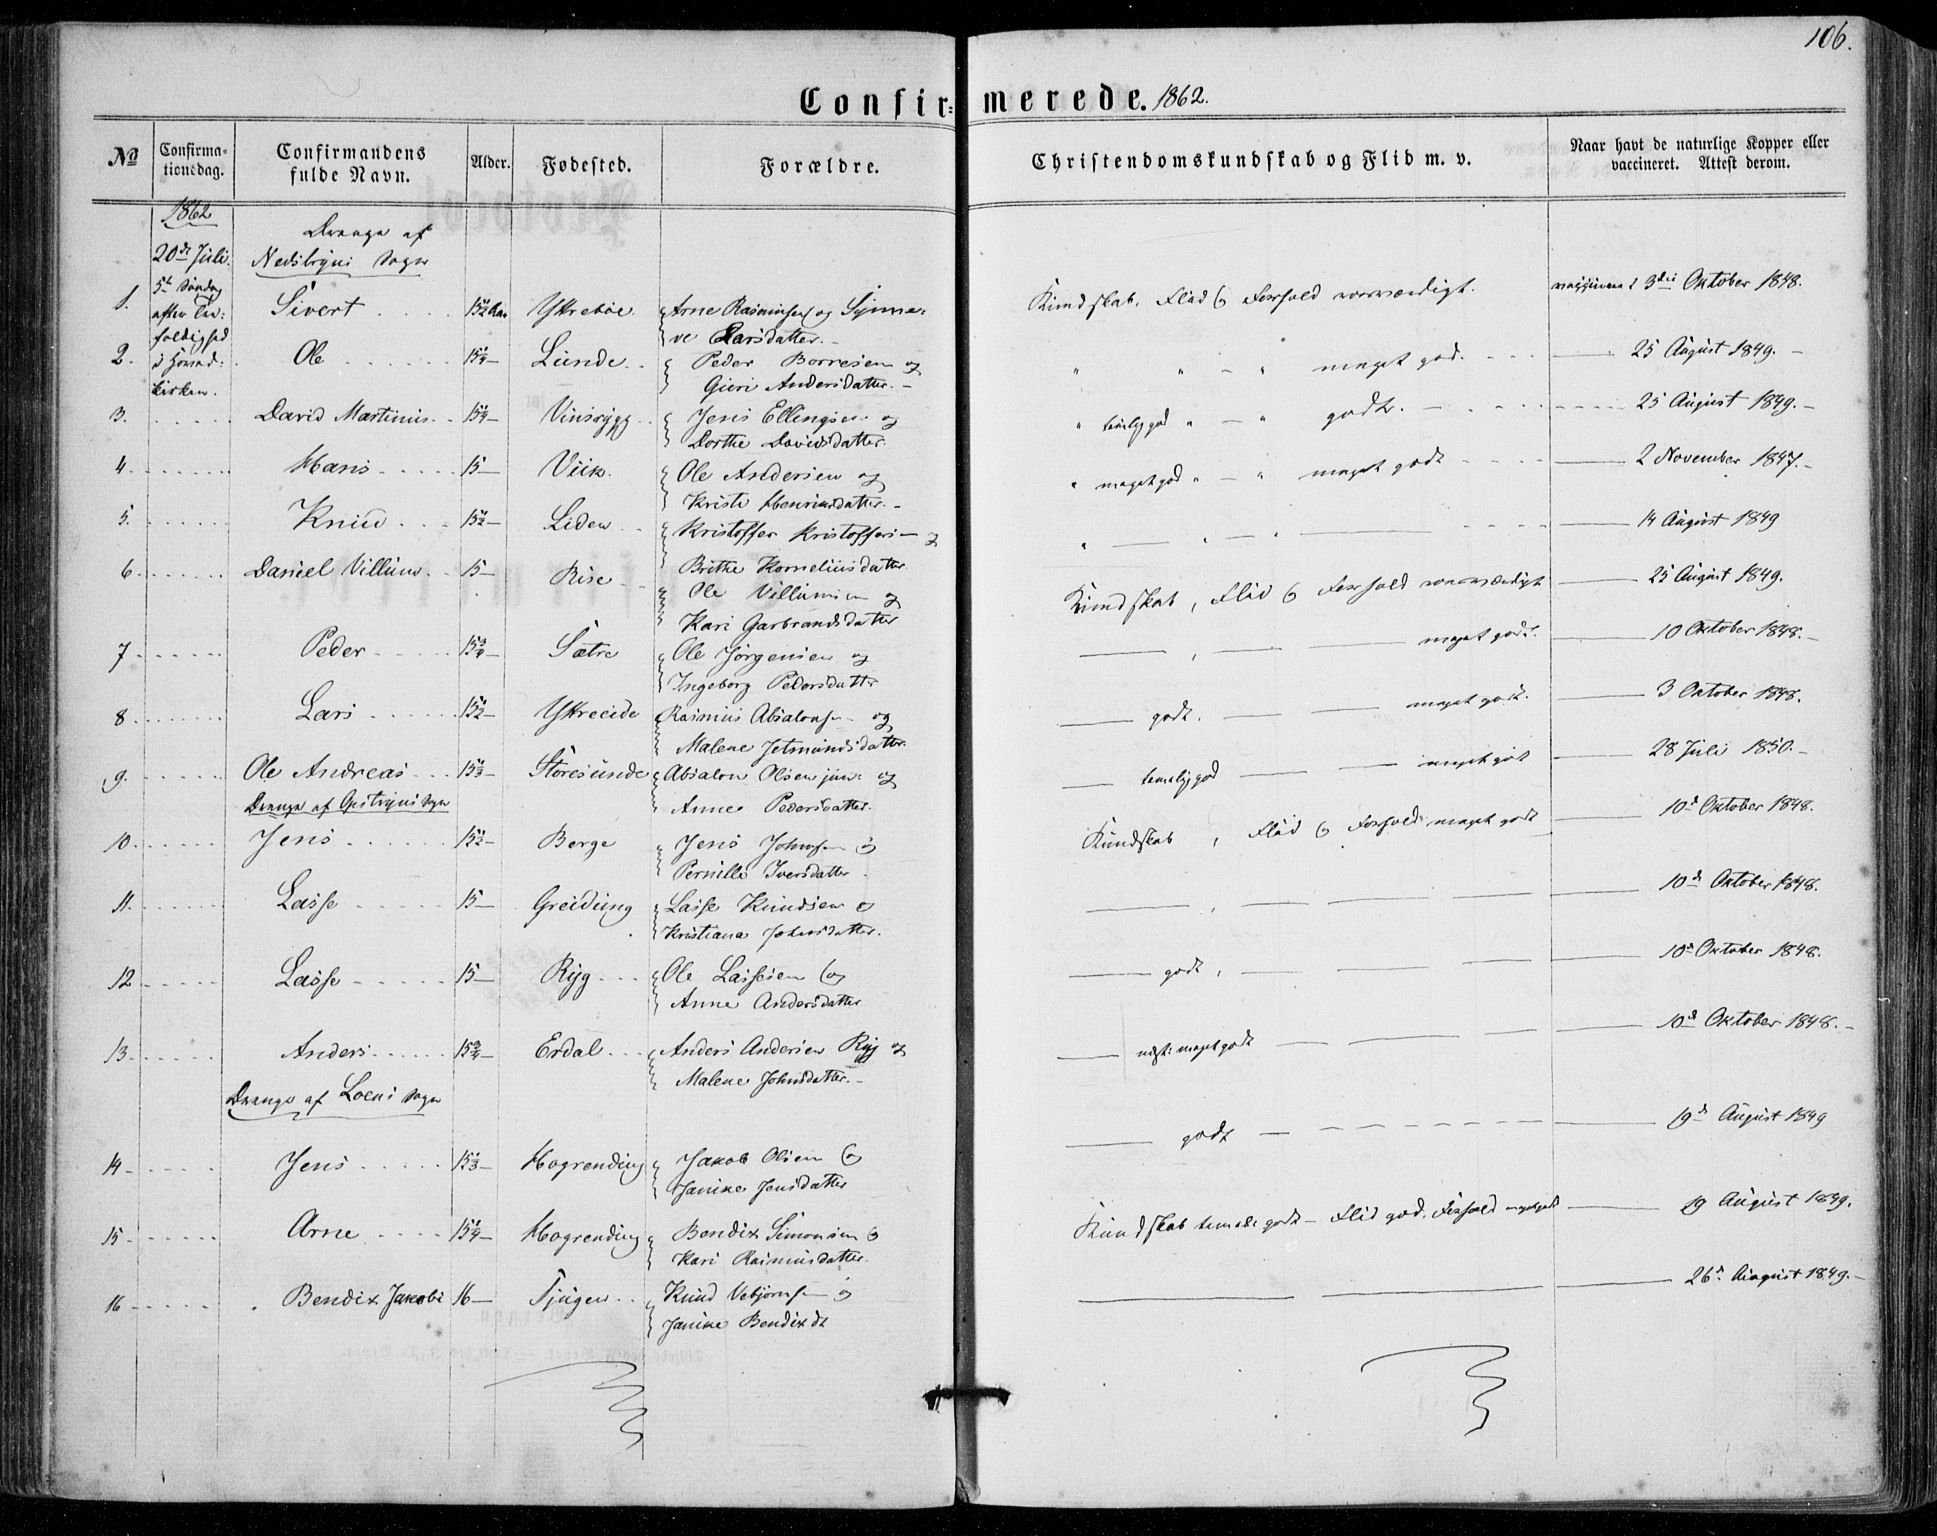 106.
Confir= merede. 1862.
No Confirma=tionsdag. Confirmandens fulde Navn. Alder. Fødested. Forældre. Christendomskundskab og Flid m. v. Naar havt de naturlige Kopper eller vaccineret. Attest derom.
1862
20de Juli. Drenge af
5te Søndag Nedstryns Sogn
after Tre:
foldighed
i Hoved:
kirken.
1. Sivert 15½ Aar Ytrebøe Arne Rasmussen og Synne= Kundskab, Flid & Forhold roesværdigt. vaccineret 3die Oktober 1848.
ve Larsdatter.
2. Ole 15¼ Lunde Peder Borresen og " " " meget god. 25 August 1849.
Gieri Andersdatter.
3. David Martinus 15¼ Vinsrygg Jens Ellingsen og " temlig god " " godt. 25 August 1849.
Dorthe Davidsdatter.
4. Hans 15 Viik. Ole Andersen og " meget god " " meget godt 2 November 1847.
Kristi Henriksdatter.
5. Knud 15½ Liden Kristoffer Kristoffers og " " " 14 August 1849
Brithe Korneliusdatter
6. Daniel Villum 15 Rise Ole Villumsen og Kundskab, Flid & Forhold roesværdigt 25 August 1849.
Kari Garbrandsdatter
7 Peder 15¾ Sætre Ole Jørgensen og meget godt. 10 Oktober 1848.
Ingeborg Pedersdatter
8 Lars 15½ Ytreeide Rasmus Absalons og godt. meget godt. 3 Oktober 1848.
Malene Jetmundsdatter.
9. Ole Andreas 15⅓ Storesunde Absalon Olsen jun: og temelig god meget godt 28 Juli 1850.
Drenge af Opstryns Sogn Anne Pedersdatter.
10. Jens 15½ Berge Jens Johns & Kundskab, Flid & Forhold meget godt 10de Oktober 1848.
Pernille Iversdatter.
11. Lasse 15 Greidung Lasse Knudsen & 10de Oktober 1848.
Kristiana Johnsdatter.
12 Lasse 15 Ryg Ole Lassesen & godt, 10de Oktober 1848.
Anne Andersdatter
13 Anders 15¾ Erdal Anders Andersen Ryg og næst: meget godt 10de Oktober 1848.
Malene Johnsdatter.
Drenge af Loens Sogn
14 Jens 15⅓ Hogrending Jakob Olsen & godt 19de August 1849
Janike Jensdatter
15 Arne 15¼ Hogrending Bendix Simonsen & Kundskab temel: godt Flid god, Forhold meget godt 19 August 1849.
Kari Rasmusdatter.
16 Bendix Jakobs 16 Tjugen Knud Vebjørns & 26de August 1849.
Janike Bendix dt